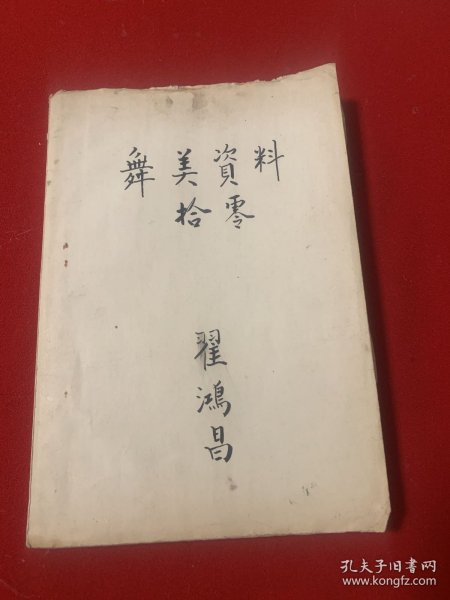 舞美資料
拾零
翟鴻昌
孔夫子旧书网
www.kongfz.com